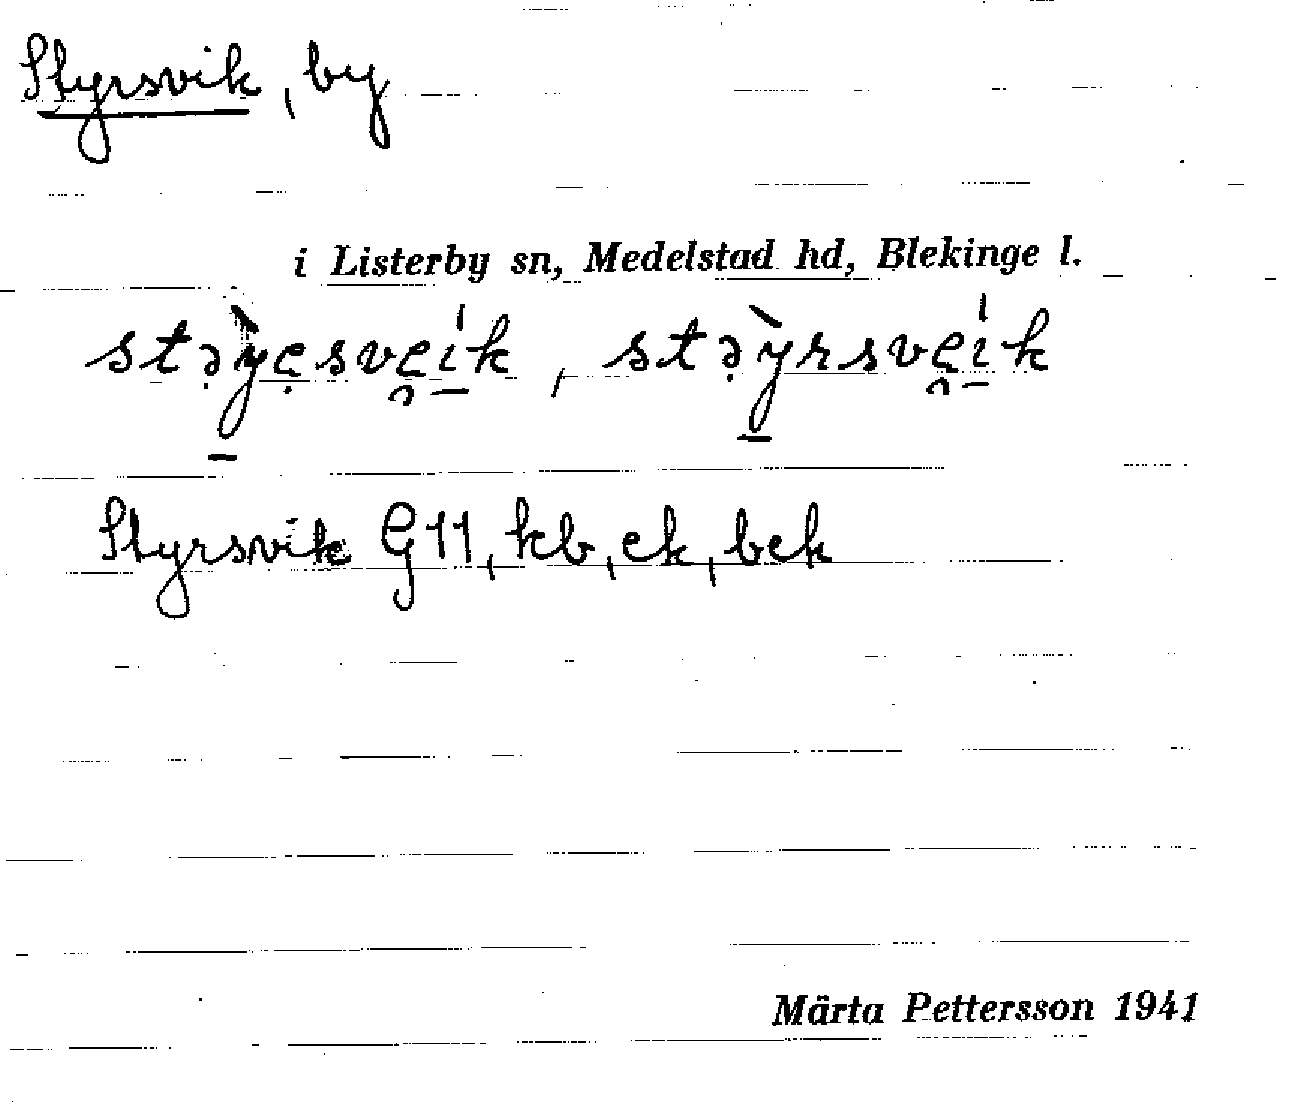 Styrsvik, by
i Listerby sn, Medelstad hd, Blekinge l.
stə̣ỳ̱ẹsve̯í̱k, stə̣ỳ̱rsve̯í̱k
Styrsvik G11, kb, ek, bek
Märta Pettersson 1941